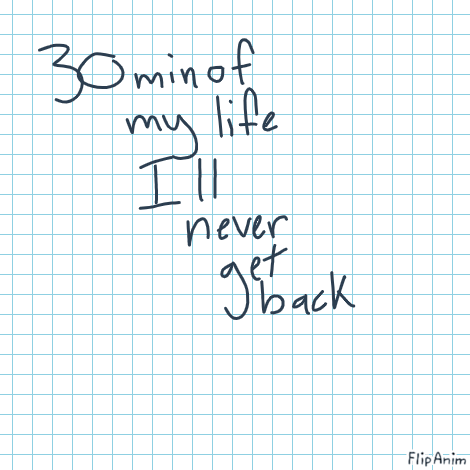 30 min of
my life
I ll
never
get
back
FlipAnim